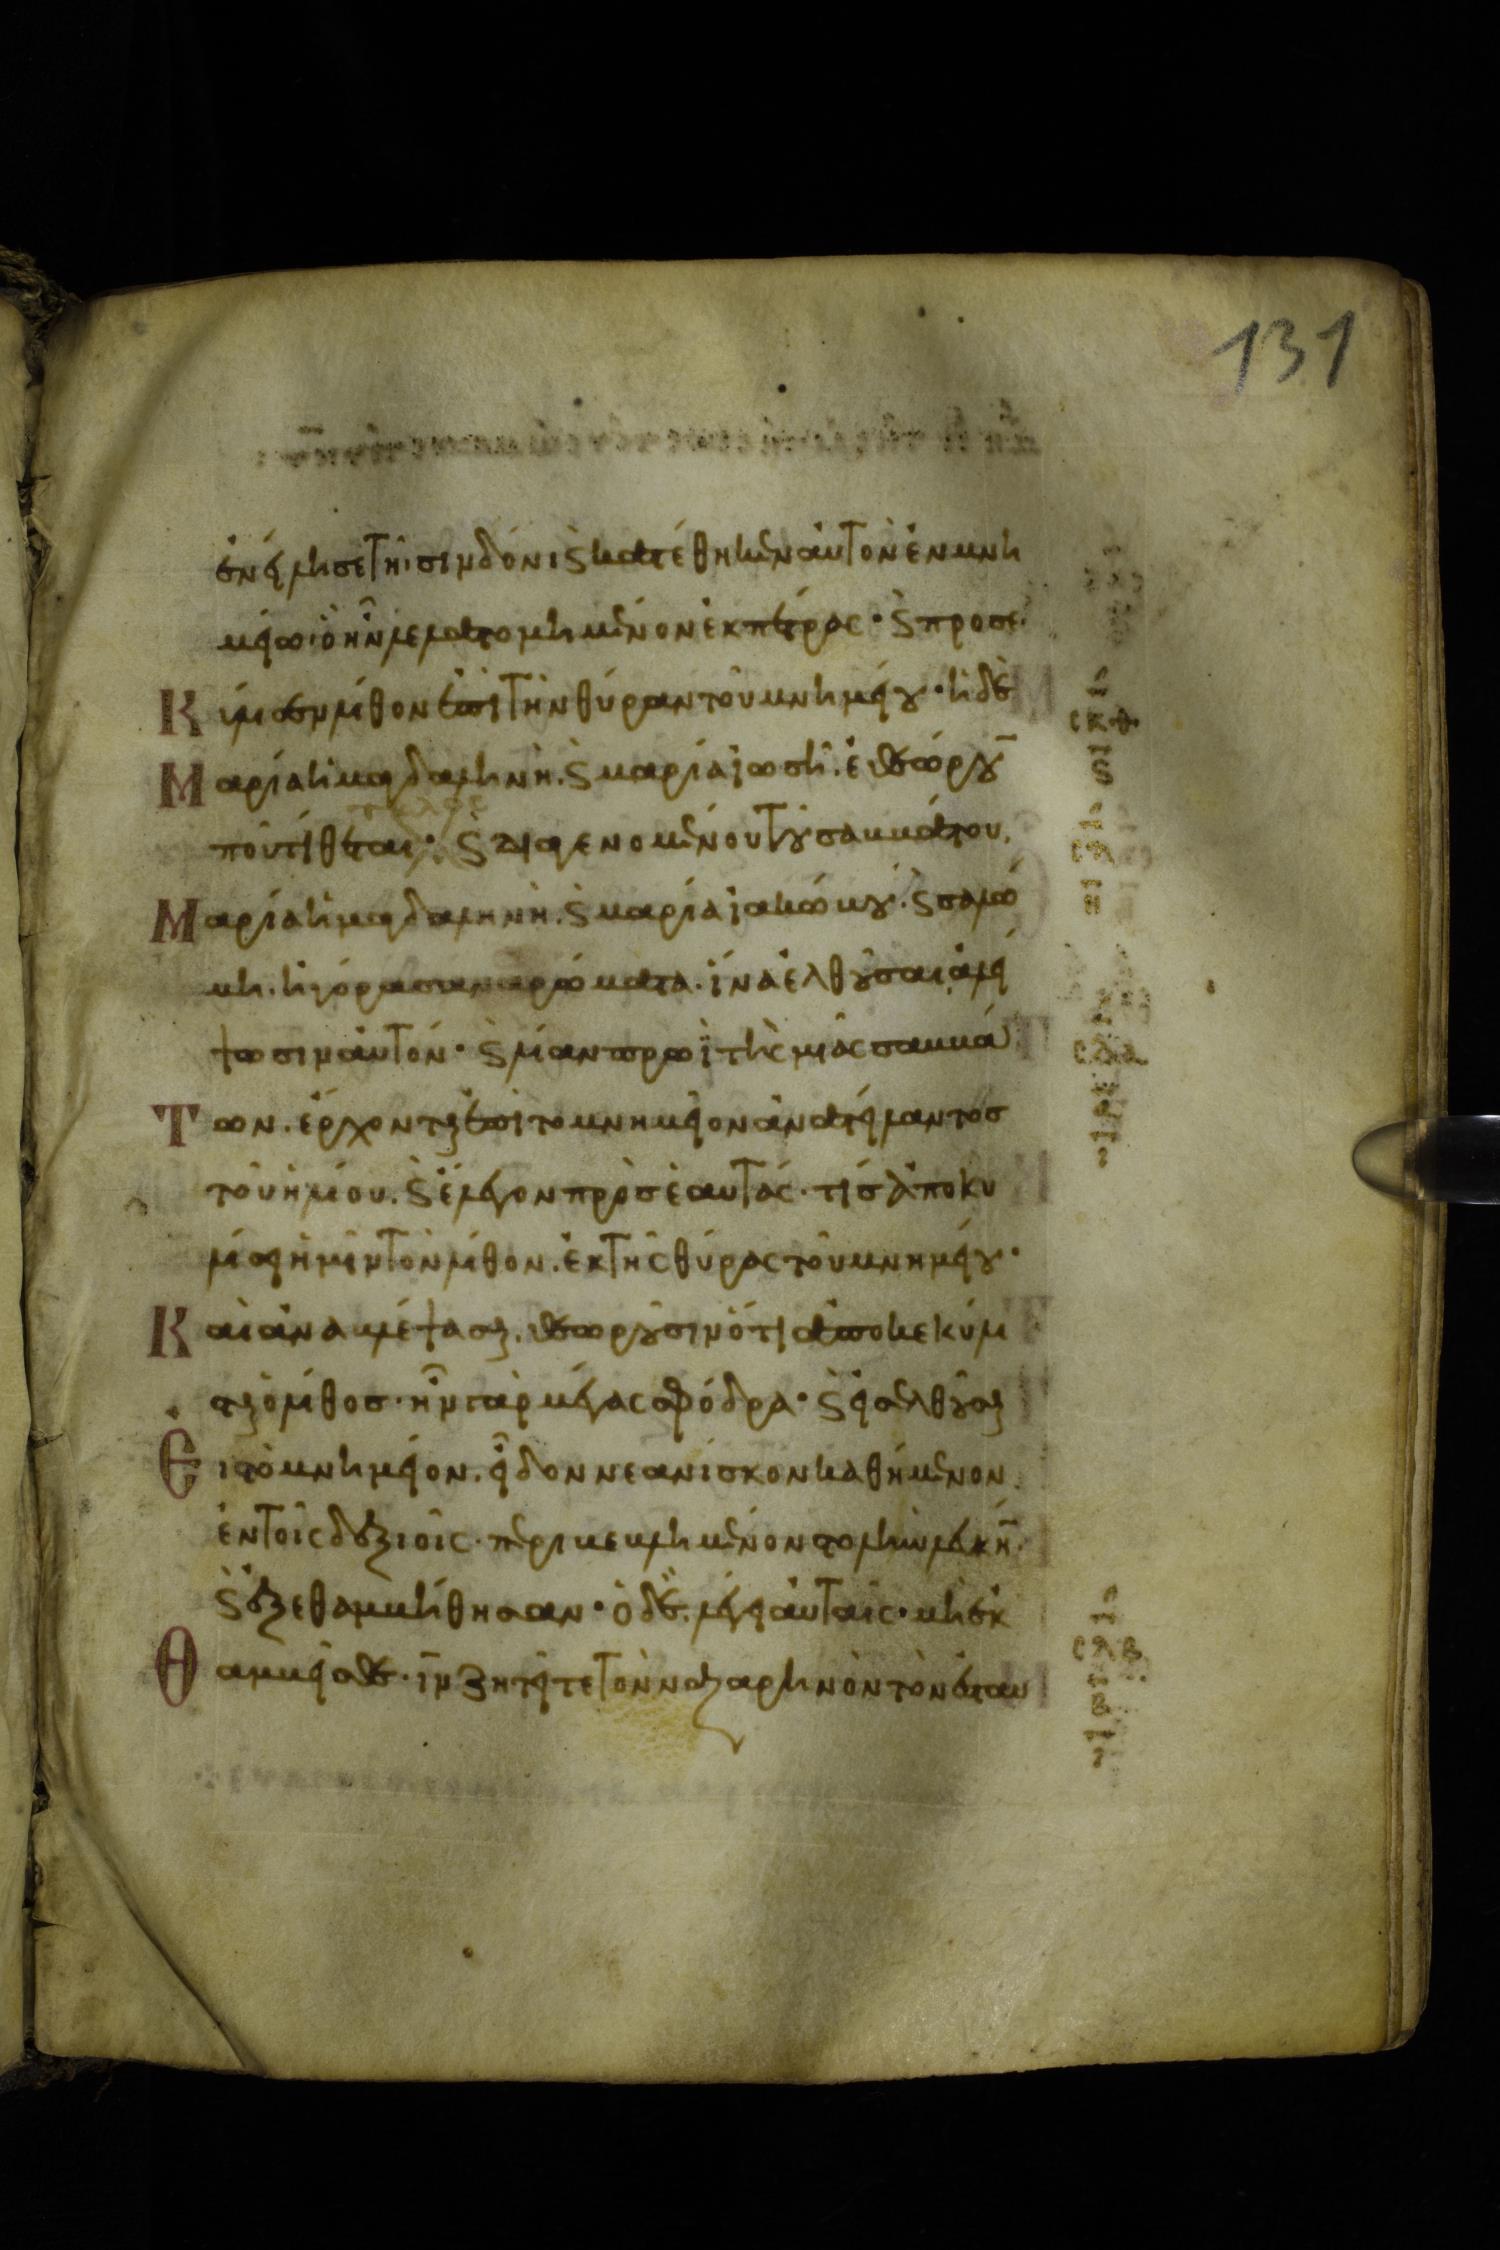 131
ἐνείλησε τῆ σινδόνι ϛ κατέθηκεν αὐτὸν ἐν μνη
μείω· ὃ ἦν λελατομημένον ἐκ πέτρας· ϛ προσε
Κύλισεν λίθον ἐπὶ τὴν θύραν τοῦ μνημείου· ἡ δὲ
Μαρία ἡ μαγδαληνὴ. ϛ μαρία ἰωσῆ. ἐθεώρουν
τέλος
ποῦ τίθεται· ϛ διαγενομένου τοῦ σαββάτου.
Μαρία ἡ μαγδαληνὴ. ϛ μαρία ἰακώβου. ϛ σαλώ
μη. ἠγόρασαν ἀρώματα. ἵνα ἐλθοῦσαι ἀλεί
ψωσιν αὐτόν· ϛ λίαν πρωῒ τῆς μιᾶς σαββά
Των. ἔρχονται ἐπὶ το μνημεῖον ἀνατείλαντος
τοῦ ἡλίου. ϛ ἔλεγον πρὸς ἑαυτάς· τίς ἀποκυ
λίσει ἡμῖν τὸν λίθον. ἐκ τῆς θύρας τοῦ μνημείου·
Καὶ ἀναβλέψασαι. θεωροῦσιν ὅτι ἀποκεκύλι
σται ὁ λίθος· ἦν γὰρ μέγας σφόδρα· ϛ εἰσελθοῦσαι
Εἰς τὸ μνημεῖον. εἶδον νεανίσκον καθήμενον
ἐν τοῖς δεξιοῖς· περιβεβλημένον στολὴν λευκήν.
ϛ ἐξεθαμβήθησαν· ὁ δὲ. λέγει αὐταῖς· μὴ ἐκ
Θαμβεῖσθε· ιν ζητεῖτε τὸν ναζαρηνὸν τὸν ἐσταυ